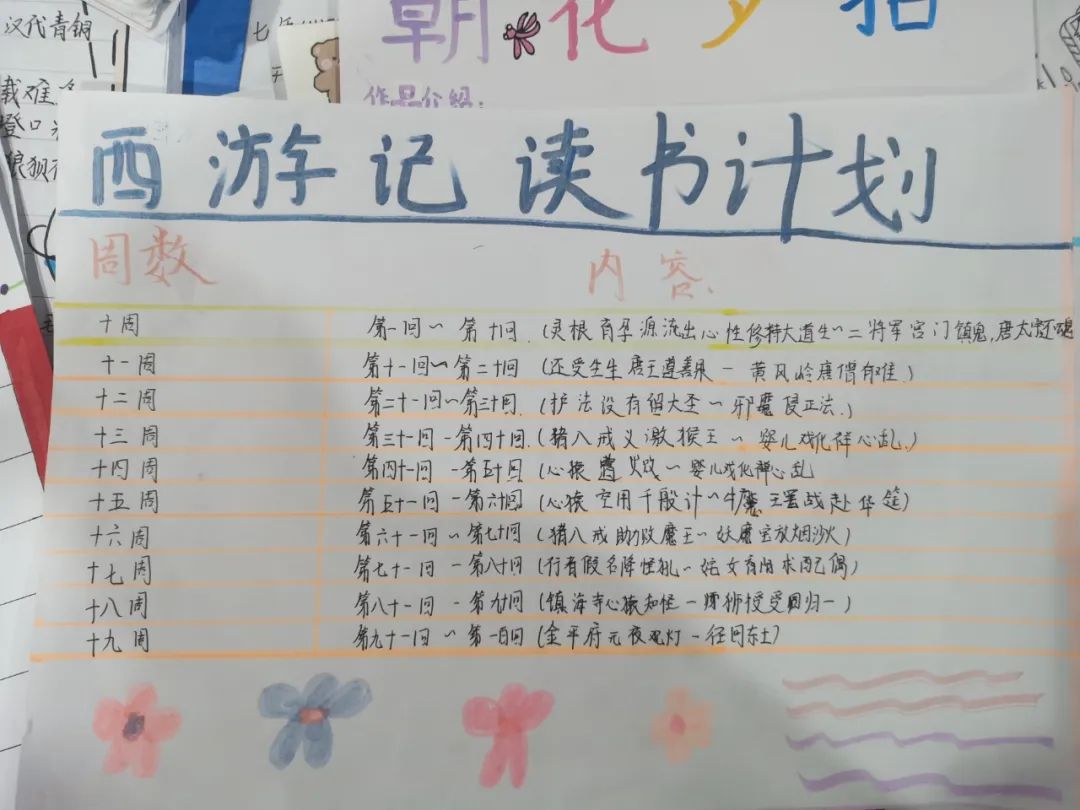 汉代青铜
载难
登口
狼狈
朝花夕拾
作品介绍:
西游记读书计划
周数 内容.
十周 第一回~第十回.(灵根育孕源流出心性修持大道生~二将军宫门镇鬼,唐太宗还魂
十一周 第十一回~第二十回(还受生生唐王遵善果-黄风岭唐僧有难.)
十二周 第二十一回~第三十回.(护法设有留大圣~邪魔侵正法.)
十三周 第三十一回-第四十回.(猪八戒义激猴王~婴儿戏化禅心乱.)
十四周 第四十一回-第五十回(心猿遭火败~婴儿戏化禅心乱
十五周 第五十一回-第六十回(心猿空用千般计~牛魔王罢战赴华筵)
十六周 第六十一回~第七十回(猪八戒助败魔王~妖魔宝放烟沙火)
十七周 第七十一回-第八十回(行者假名降怪犼~姹女育阳求配偶)
十八周 第八十一回-第九十回(镇海寺心猿知怪-授受归一)
十九周 第九十一回~第一百回(金平府元夜观灯-径回东土)